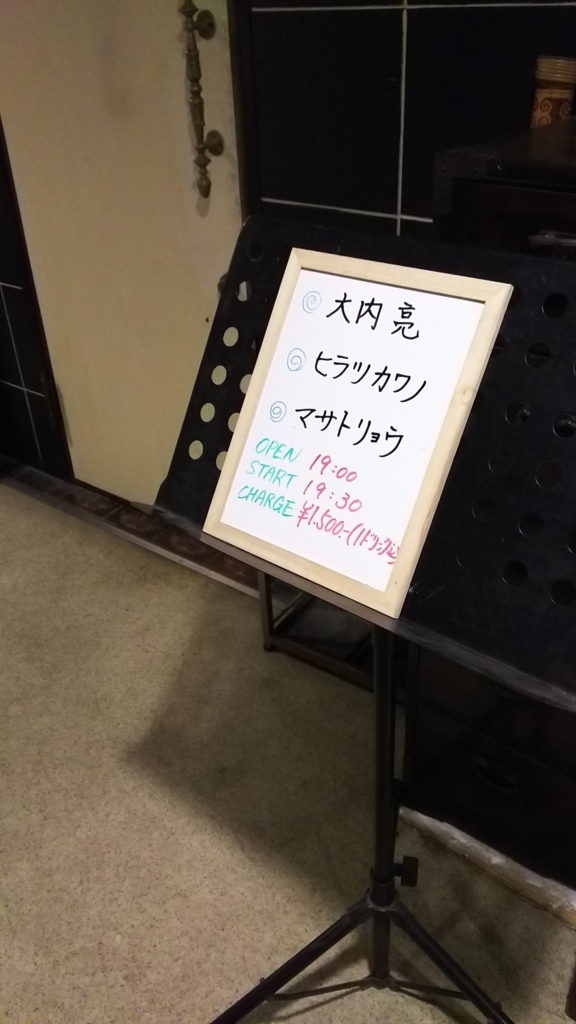 大内 亮
ヒラツカワノ
マサトリョウ
OPEN 19:00
START 19:30
CHARGE ¥1.500.-(1ドリンク込)